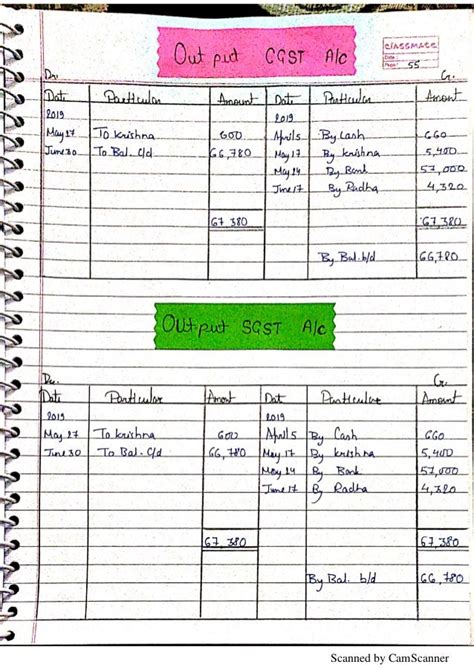 Output CGST A/c
classmate
Date
Page 55
Dr. Cr.
Date Particular Amount Date Particular Amount
2019 2019
May 27 To Krishna 600 April 5 By Cash 660
June 30 To Bal. c/d 66,780 May 17 By Krishna 5,400
May 24 By Bank 57,000
June 17 By Radha 4,320
67,380 67,380
By Bal. b/d 66,780
Output SGST A/c
Dr. Cr.
Date Particular Amount Date Particular Amount
2019 2019
May 27 To Krishna 600 April 5 By Cash 660
June 30 To Bal. c/d 66,780 May 17 By Krishna 5,400
May 24 By Bank 57,000
June 17 By Radha 4,320
67,380 67,380
By Bal. b/d 66,780
Scanned by CamScanner